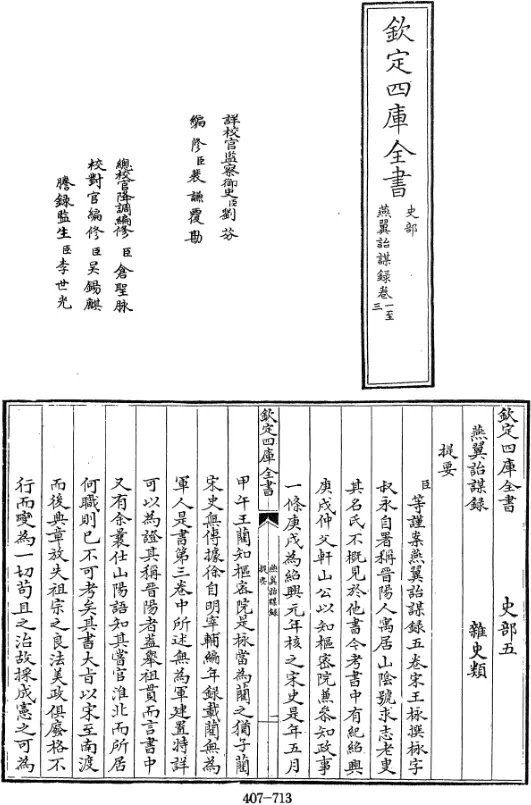 欽定四庫全書
史部
燕翼詒謀錄卷一至三
詳校官監察御史臣劉芬
編修臣裴謙覆勘
總校官降調編修臣倉聖脉
校對官編修臣吴錫麒
謄錄監生臣李世光
欽定四庫全書
史部五
燕翼詒謀錄
雜史類
提要
臣等謹案燕翼詒謀錄五卷宋王栐撰栐字
叔永自署稱晉陽人寓居山隂號求志老叟
其名氏不概見於他書今考書中有紀紹興
庚戌仲父軒山公以知樞密院兼叅知政事
一條庚戌為紹興元年核之宋史是年五月
甲午王藺知樞密院是栐當為藺之猶子藺
宋史無傳據徐自明宰輔編年録載藺無為
軍人是書第三卷中所述無為軍建置特詳
可以為證其稱晉陽者葢舉祖貫而言書中
又有余曩仕山陽語知其嘗官淮北而所居
何職則已不可考矣其書大㫖以宋至南渡
而後典章放失祖宗之良法美政俱廢格不
行而變為一切苟且之治故採成憲之可為
欽定四庫全書
燕翼詒謀錄
提要
一
407-713